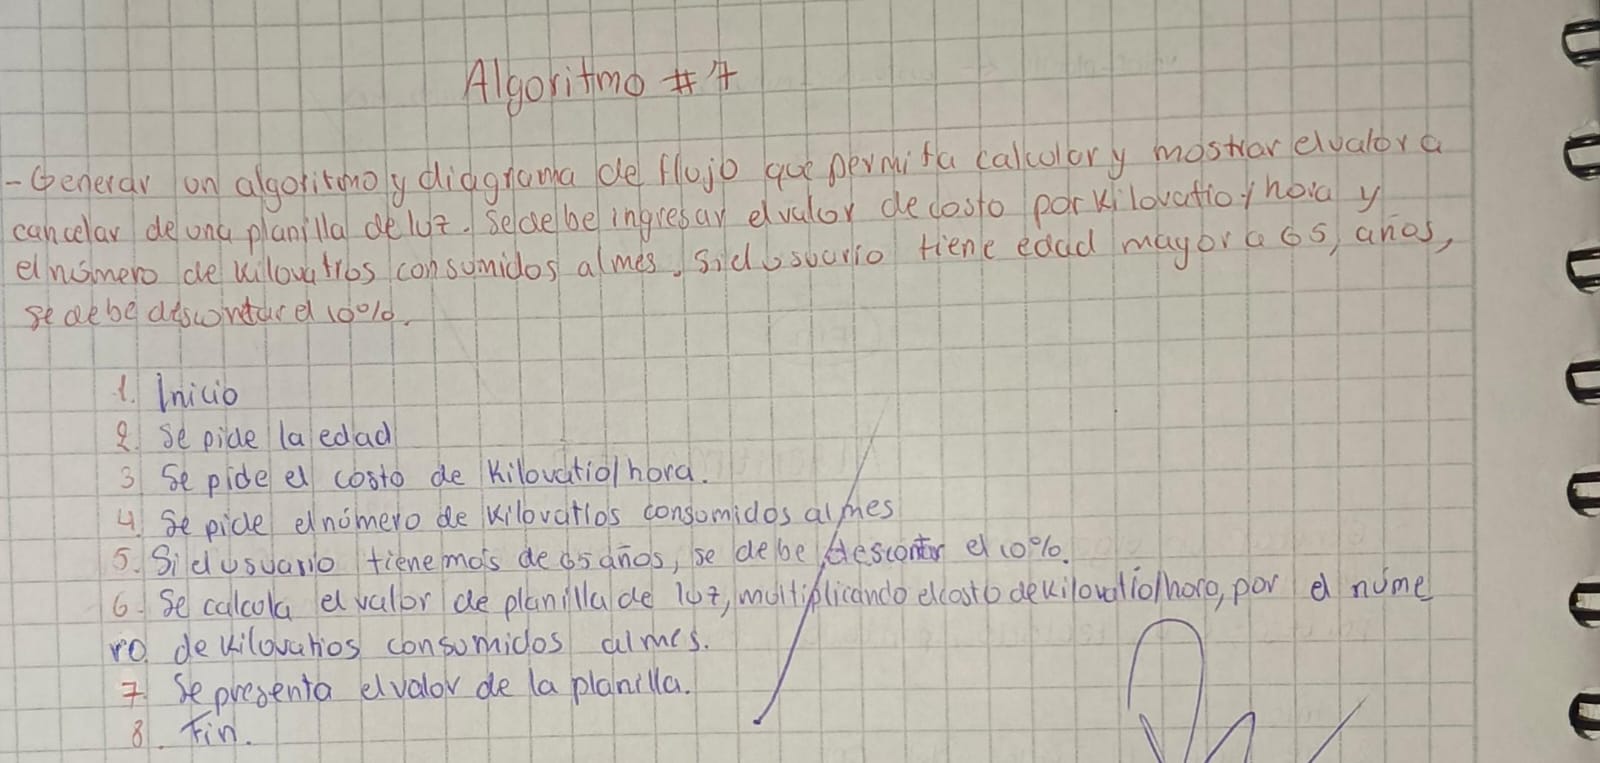 Algoritmo #7
- Generar un algoritmo y diagrama de flujo que permita calcular y mostrar el valor a
cancelar de una planilla de luz. Se debe ingresar el valor de costo por kilovatio/hora y
el número de kilovatios consumidos al mes. Si el usuario tiene edad mayor a 65, años,
se debe descontar el 10%.
1. Inicio
2. Se pide la edad
3 Se pide el costo de kilovatio/hora.
4. Se pide el número de kilovatios consumidos al mes
5. Si el usuario tiene más de 65 años, se debe descontar el 10%.
6. Se calcula el valor de planilla de luz, multiplicando el costo de kilovatio/hora, por el núme
ro de kilovatios consumidos al mes.
7. Se presenta el valor de la planilla.
8. Fin.